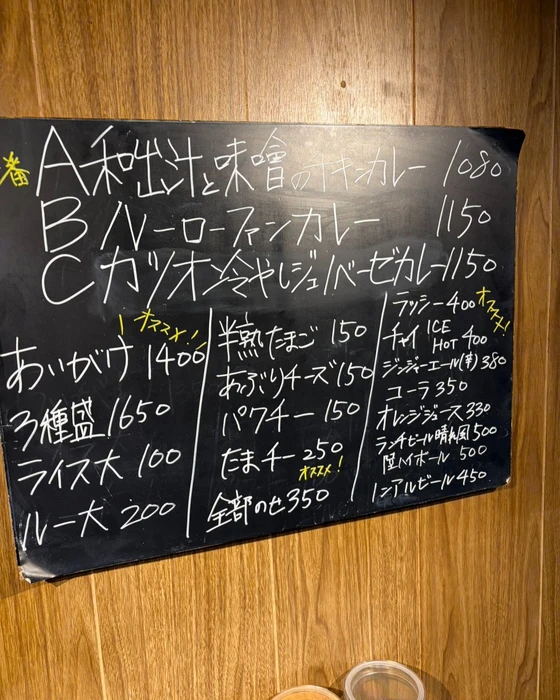 番
A 和出汁と味噌のチキンカレー 1080
B ルーローファンカレー 1150
C カツオ冷やしジュノベーゼカレー 1150
! オススメ!
あいがけ 1400
3種盛 1650
ライス大 100
ルー大 200
半熟たまご 150
あぶりチーズ 150
パクチー 150
たまチー 250
オススメ!
全部のせ 350
ラッシー 400
オススメ!
チャイ ICE HOT 400
ジンジャーエール(辛) 380
コーラ 350
オレンジジュース 330
ランチビール晴れ風 500
ハイボール 500
ノンアルビール 450